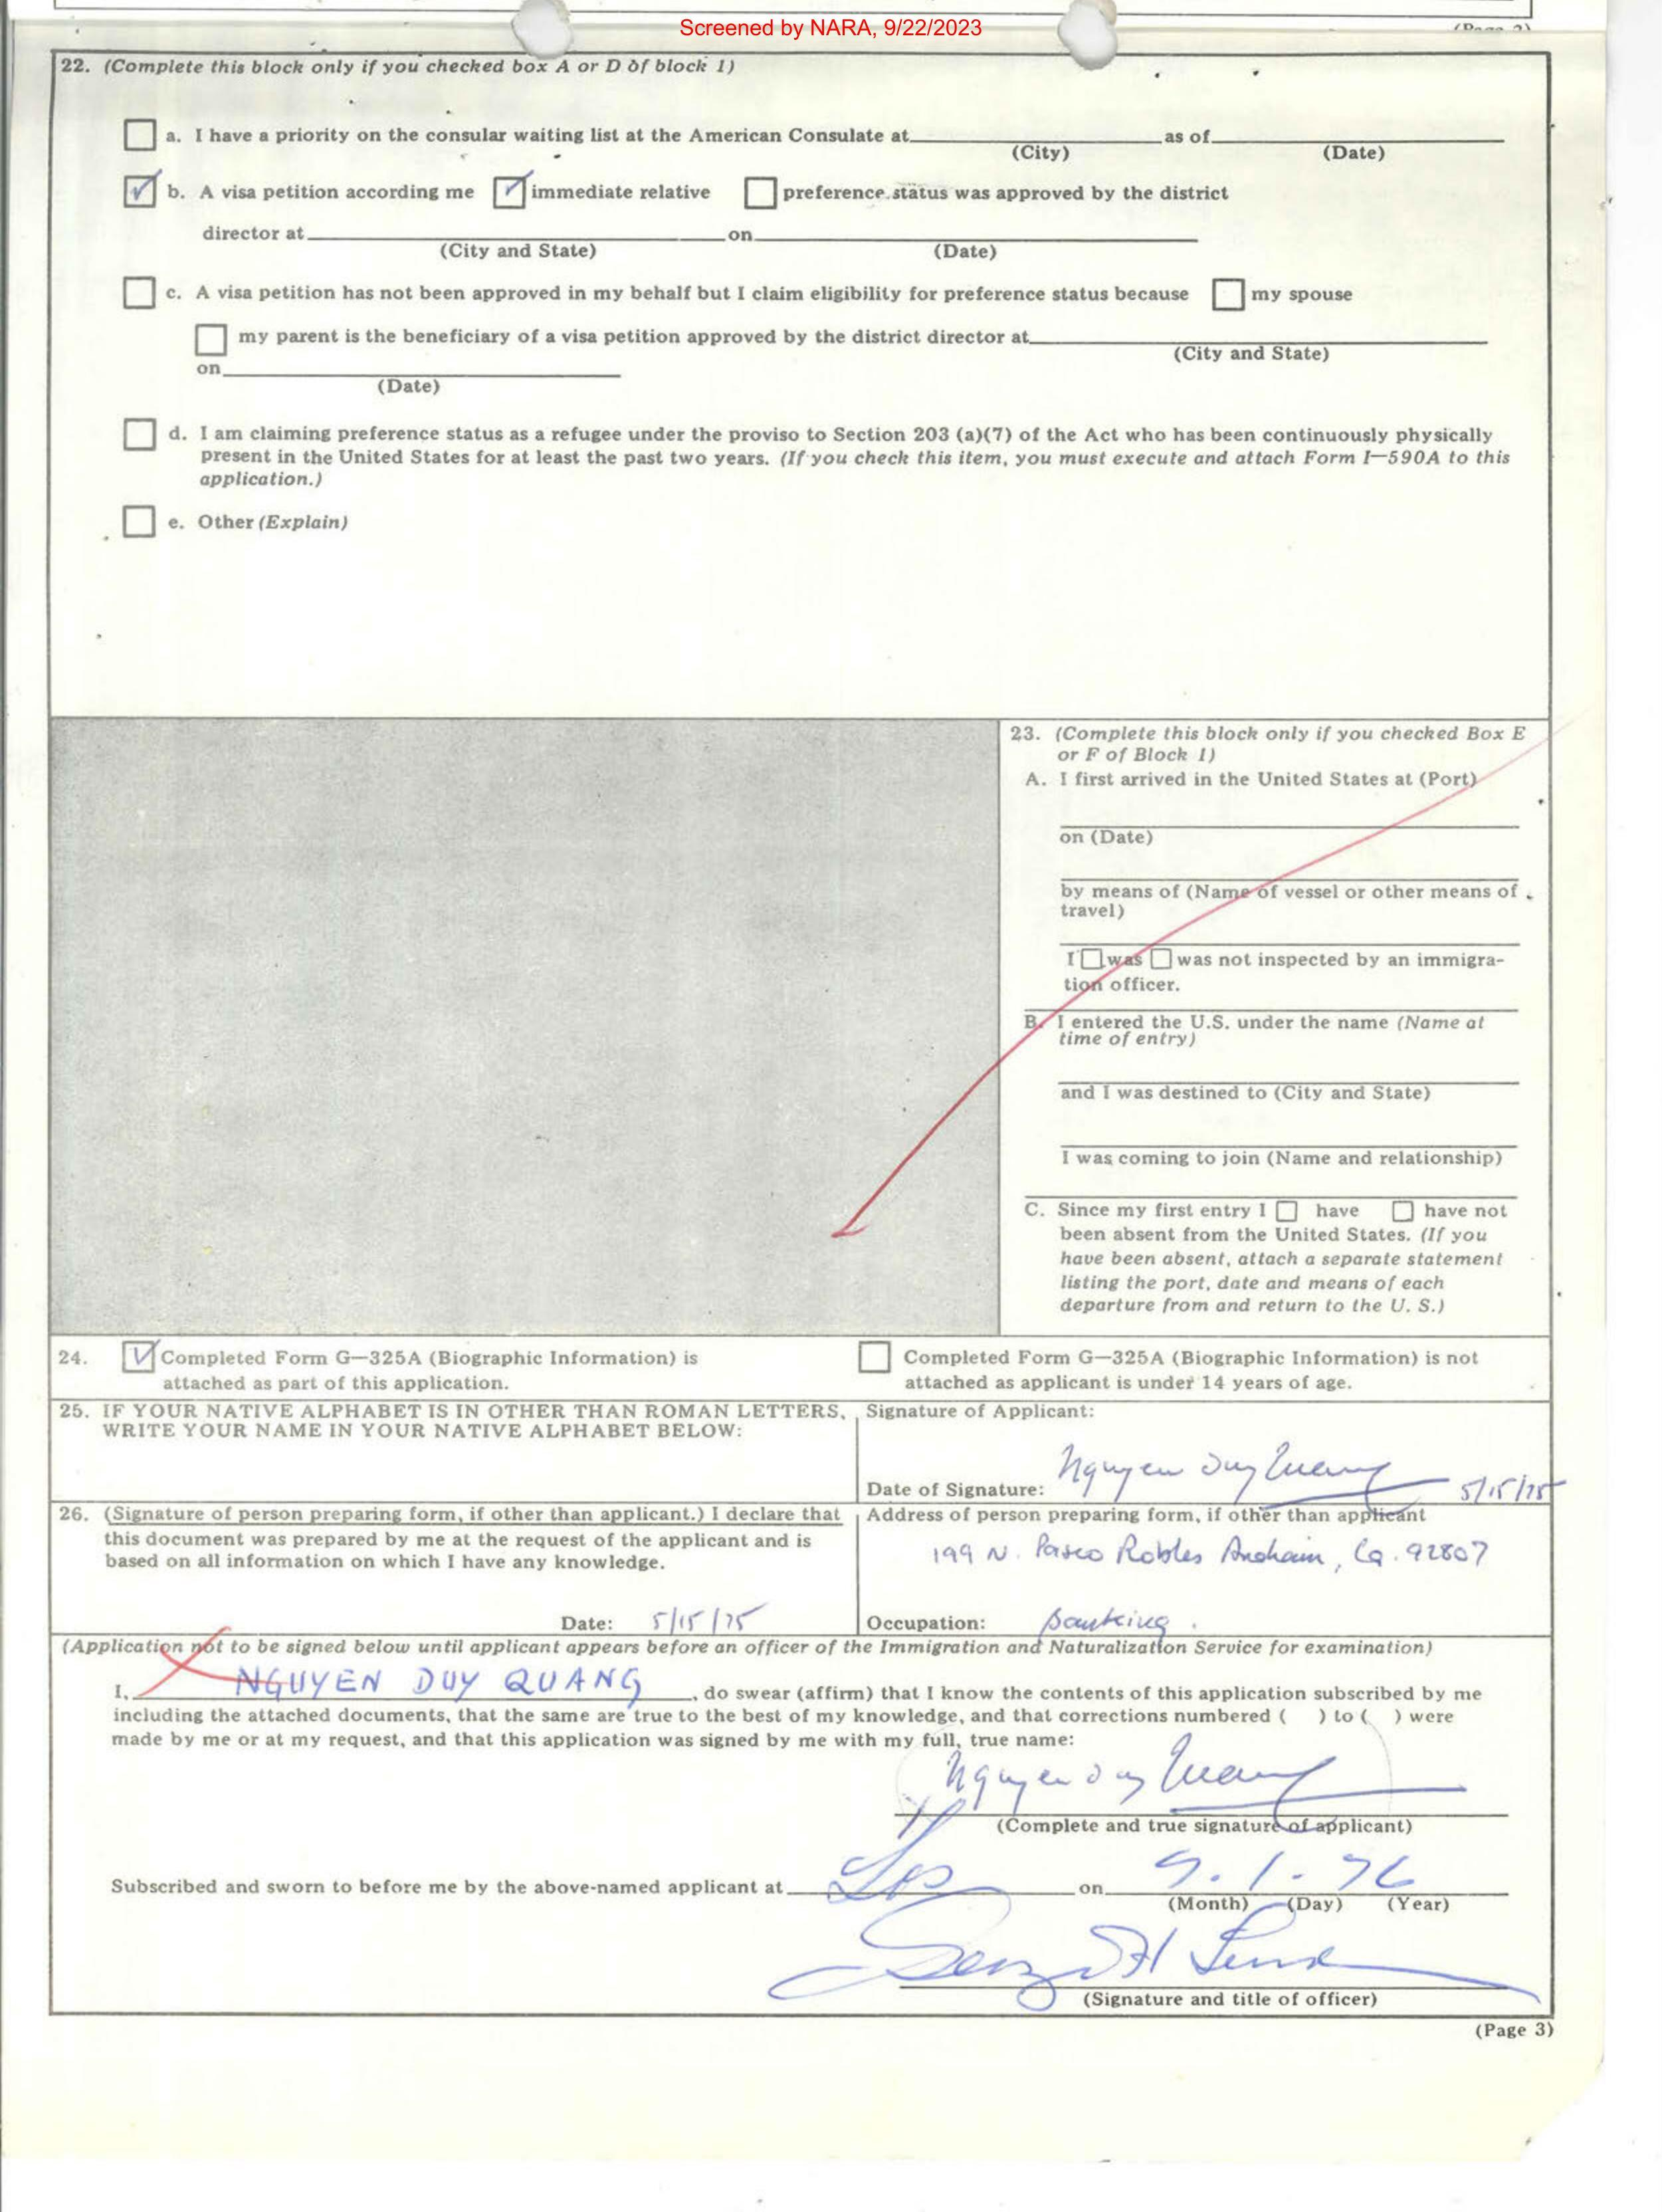 Screened by NARA, 9/22/2023
22. (Complete this block only if you checked box A or D of block 1)
a. I have a priority on the consular waiting list at the American Consulate at as of
(City) (Date)
b. A visa petition according me immediate relative preference status was approved by the district
director at on
(City and State) (Date)
c. A visa petition has not been approved in my behalf but I claim eligibility for preference status because my spouse
my parent is the beneficiary of a visa petition approved by the district director at
(City and State)
on
(Date)
d. I am claiming preference status as a refugee under the proviso to Section 203 (a)(7) of the Act who has been continuously physically
present in the United States for at least the past two years. (If you check this item, you must execute and attach Form I-590A to this
application.)
e. Other (Explain)
23. (Complete this block only if you checked Box E
or F of Block 1)
A. I first arrived in the United States at (Port)
on (Date)
by means of (Name of vessel or other means of
travel)
I was was not inspected by an immigra-
tion officer.
B. I entered the U.S. under the name (Name at
time of entry)
and I was destined to (City and State)
I was coming to join (Name and relationship)
C. Since my first entry I have have not
been absent from the United States. (If you
have been absent, attach a separate statement
listing the port, date and means of each
departure from and return to the U. S.)
24. Completed Form G-325A (Biographic Information) is
attached as part of this application.
Completed Form G-325A (Biographic Information) is not
attached as applicant is under 14 years of age.
25. IF YOUR NATIVE ALPHABET IS IN OTHER THAN ROMAN LETTERS,
WRITE YOUR NAME IN YOUR NATIVE ALPHABET BELOW:
Signature of Applicant:
Nguyen Duy Quang
Date of Signature: 5/15/75
26. (Signature of person preparing form, if other than applicant.) I declare that
this document was prepared by me at the request of the applicant and is
based on all information on which I have any knowledge.
Date: 5/15/75
Address of person preparing form, if other than applicant
199 N. Paseo Robles Anaheim, Ca. 92807
Occupation: banking.
(Application not to be signed below until applicant appears before an officer of the Immigration and Naturalization Service for examination)
I, NGUYEN DUY QUANG, do swear (affirm) that I know the contents of this application subscribed by me
including the attached documents, that the same are true to the best of my knowledge, and that corrections numbered ( ) to ( ) were
made by me or at my request, and that this application was signed by me with my full, true name:
Nguyen Duy Quang
(Complete and true signature of applicant)
Subscribed and sworn to before me by the above-named applicant at on 9.1.76
(Month) (Day) (Year)
(Signature and title of officer)
(Page 3)